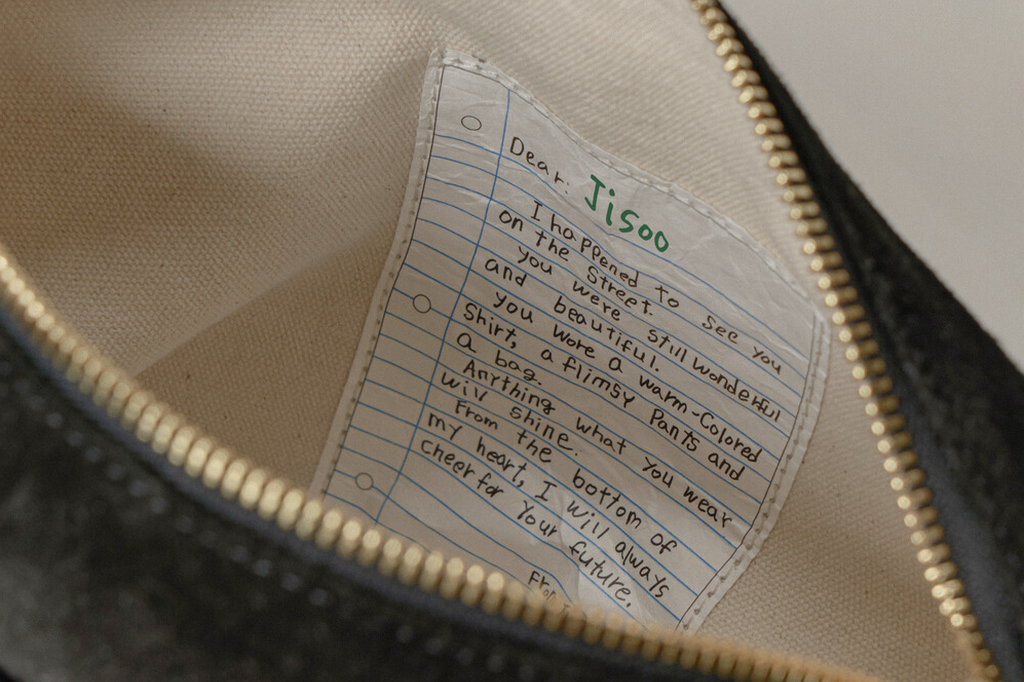 Dear: Jisoo
I happened to see you
on the street.
you were still wonderful
and beautiful.
you wore a warm-colored
shirt, a flimsy pants and
a bag.
Anything what you wear
will shine.
From the bottom of
my heart, I will always
cheer for your future.
From